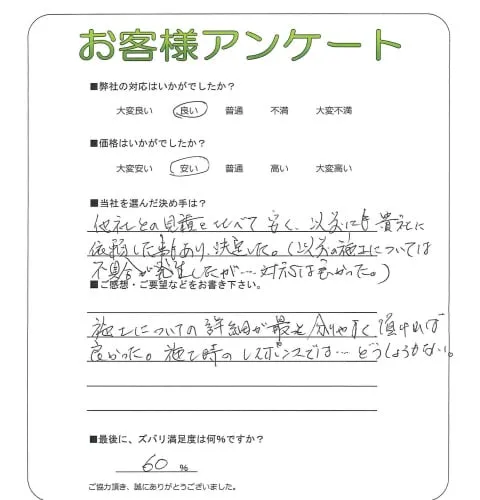 お客様アンケート
■弊社の対応はいかがでしたか?
大変良い 良い 普通 不満 大変不満
■価格はいかがでしたか?
大変安い 安い 普通 高い 大変高い
■当社を選んだ決め手は?
他社との見積を比べて安く、以前にも貴社に
依頼した事もあり、決定した。(以前の施工については
不具合が発生したが…対応は良かった。)
■ご感想・ご要望などをお書き下さい。
施工についての詳細が最も分りやすく頂ければ
良かった。施工時のレスポンスでは…どうしようもない。
■最後に、ズバリ満足度は何%ですか?
60 %
ご協力頂き、誠にありがとうございました。